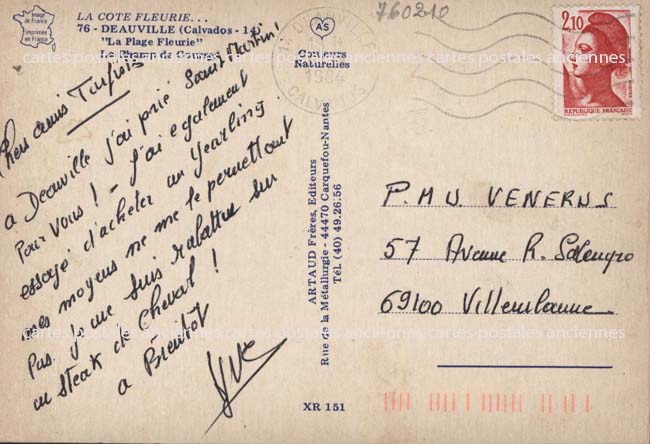 Image
de France
Imprimée
en France
LA COTE FLEURIE...
76 - DEAUVILLE (Calvados - 14)
"La Plage Fleurie"
Le Champ de Courses
AS
Couleurs
Naturelles
760210
14 DEAUVILLE
CALVADOS
2,10
REPUBLIQUE FRANÇAISE
Chers amis Turfistes
à Deauville j'ai prié Saint Martin !
Pour vous ! - j'ai également
essayé d'acheter un Yearling
mes moyens ne me le permettant
Pas. je me suis rabattue sur
un steak de Cheval !
a Bientôt
ARTAUD Frères, Editeurs
Rue de la Métallurgie - 44470 Carquefou-Nantes
Tél. (40) 49.26.56
P.M.U VENERUS
57 Avenue R. Salengro
69100 Villeurbanne
cartes postales anciennes cartes postales anciennes cartes postales anciennes
XR 151